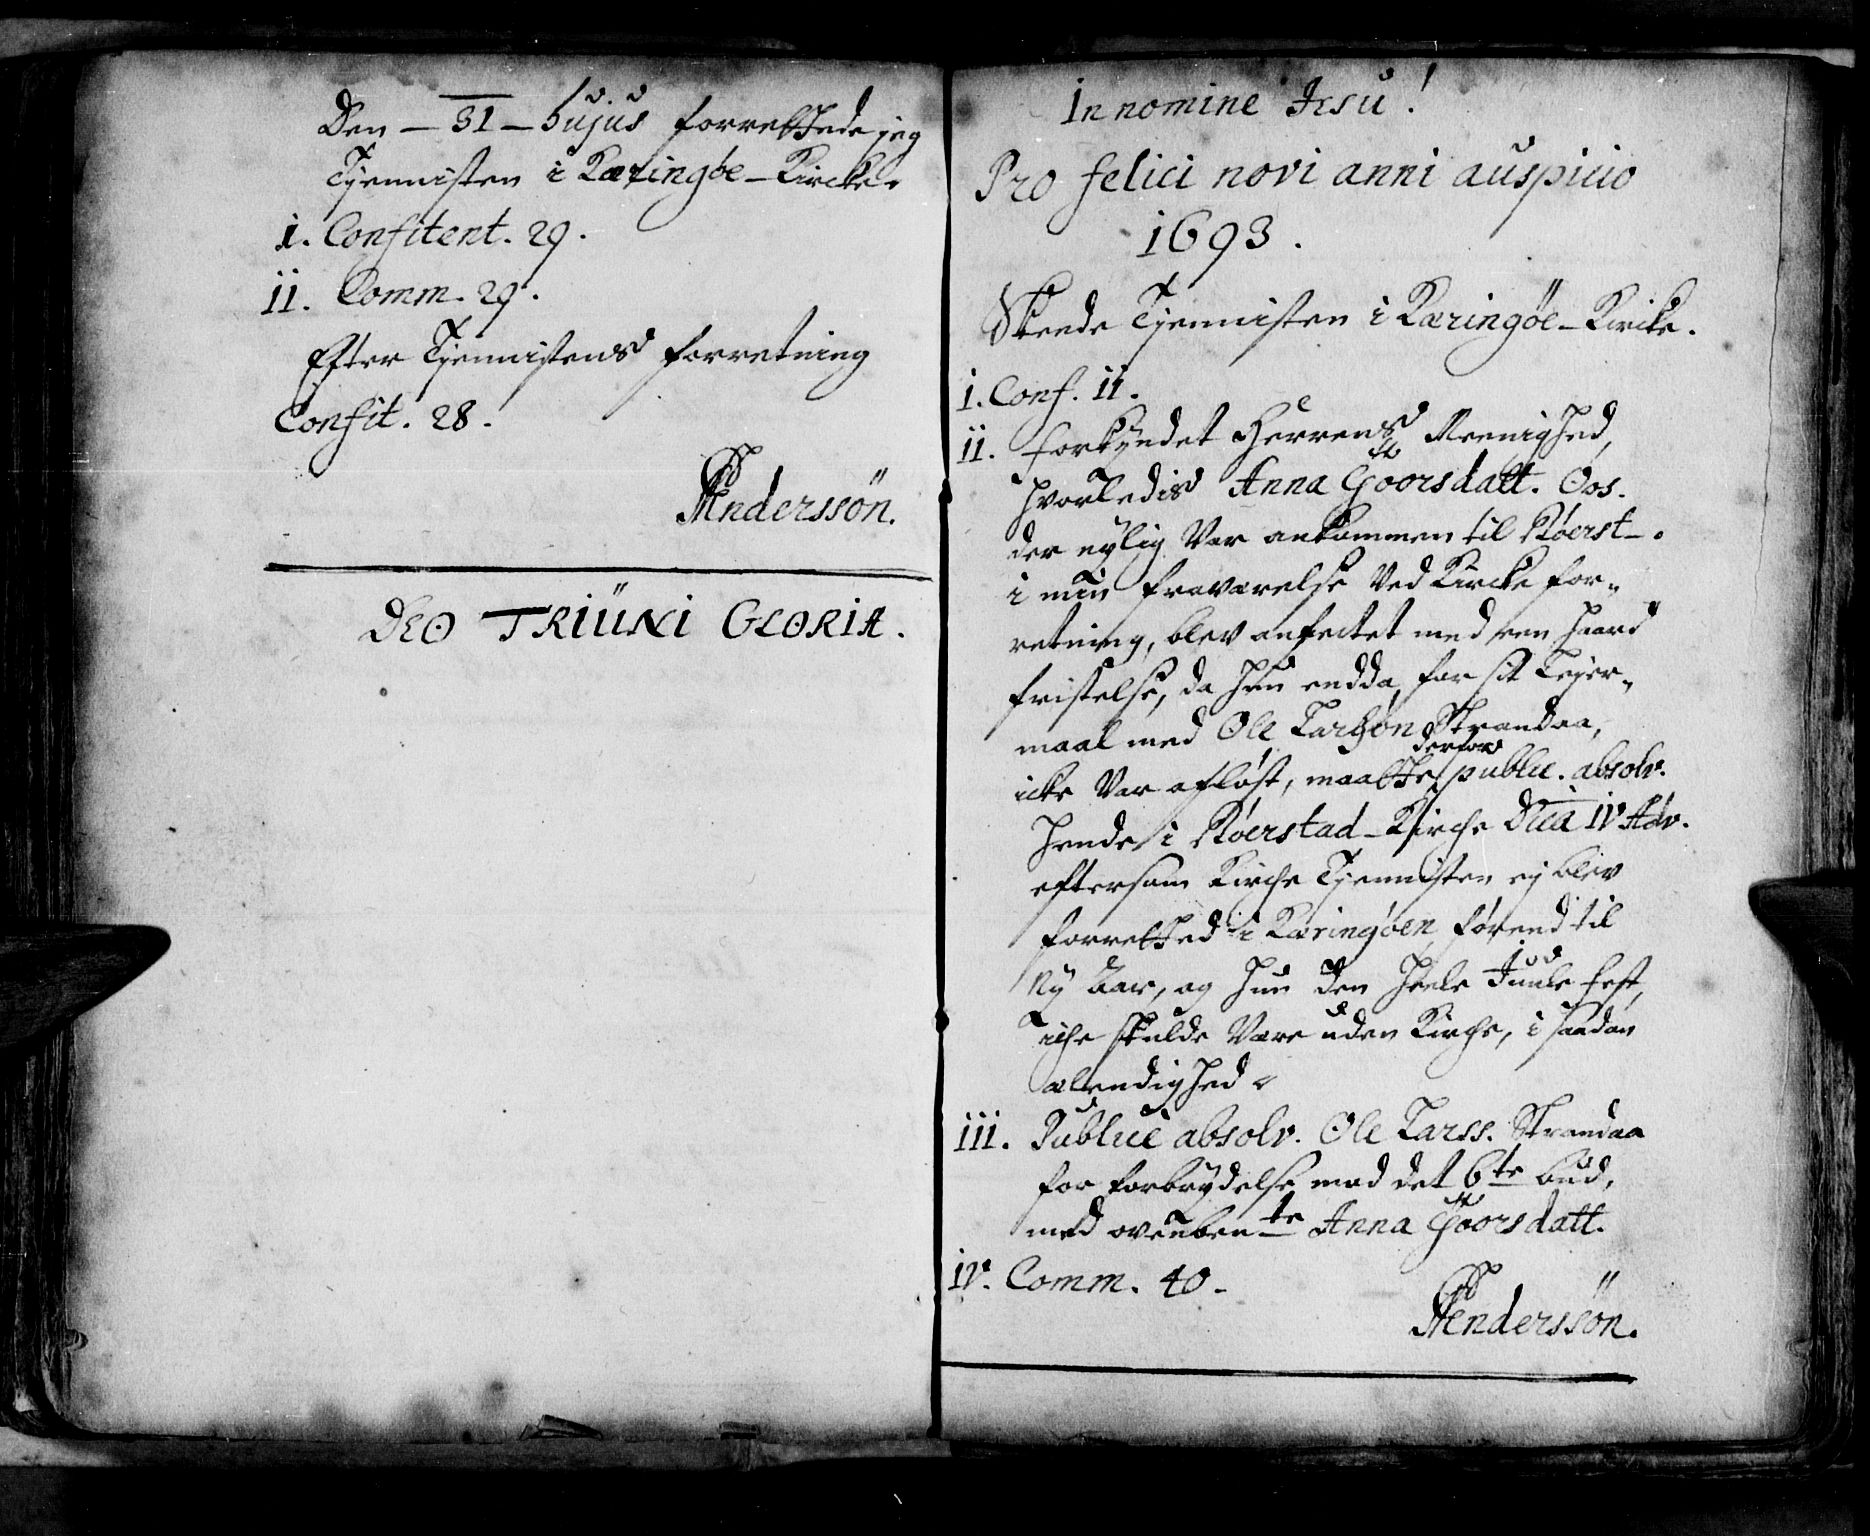 Den – 31 – hujus forrettede jeg
Tjennisten i Kæringøe-Kircke.
i. Confitent. 29.
ii. Comm. 29.
Efter Tjennistens forretning
Confit. 28.
Anderssön.
DEO TRIÜNI GLORIA.
In nomine Jesu!
Pro felici novi anni auspicio
1693.
Skeede Tjennisten i Kæringöe-Kircke.
i. Conf. 11.
ii. forkyndet Herrens Meenighed,
hvorledis Anna Goorsdatt. Oos.
der nylig Var ankommen til Røerst-.
i min fraværelse Ved Kircke for-
retning, blev anfectet med een haard
fristelse, da hun endda for sit Lejer-
maal med Ole Larsøn Strandaa,
icke Var afløst, maatte derfor public. absolv.
hende i Røerstad-Kirche Dnica IV Adv.
eftersom Kirche Tjennisten ej blev
forretted i Kæringøen, førend til
Ny Aar, og hun den heele Juule fest,
iche skulde Være uden Kirche, i saadan
ælendighed.
iii. Publice absolv. Ole Larss. Strandaa
for forbrydelse mod det 6te bud,
med ovenbente Anna Goorsdatt.
iv. Comm. 40.
Anderssön.